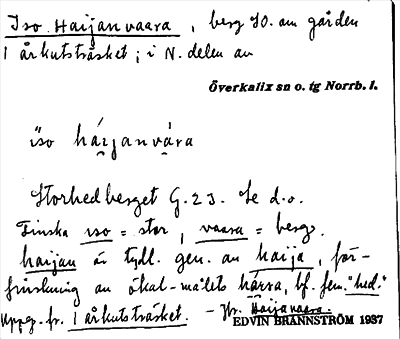 Iso Haijanvaara, berg SO. om gården
1 årkutsträsket; i N. delen av
Överkalix sn o. tg Norrb. l.
iso háijanvára
Storhedberget G.23. Se d.o.
Finska iso = stor, vaara = berg.
haijan är tydl. gen. av haija, för-
finskning av ökal-målets hárra, bf. fem. "hed."
Uppg. fr. 1 årkutsträsket. – Jfr. Haijavaara.
EDVIN BRÄNNSTRÖM 1937